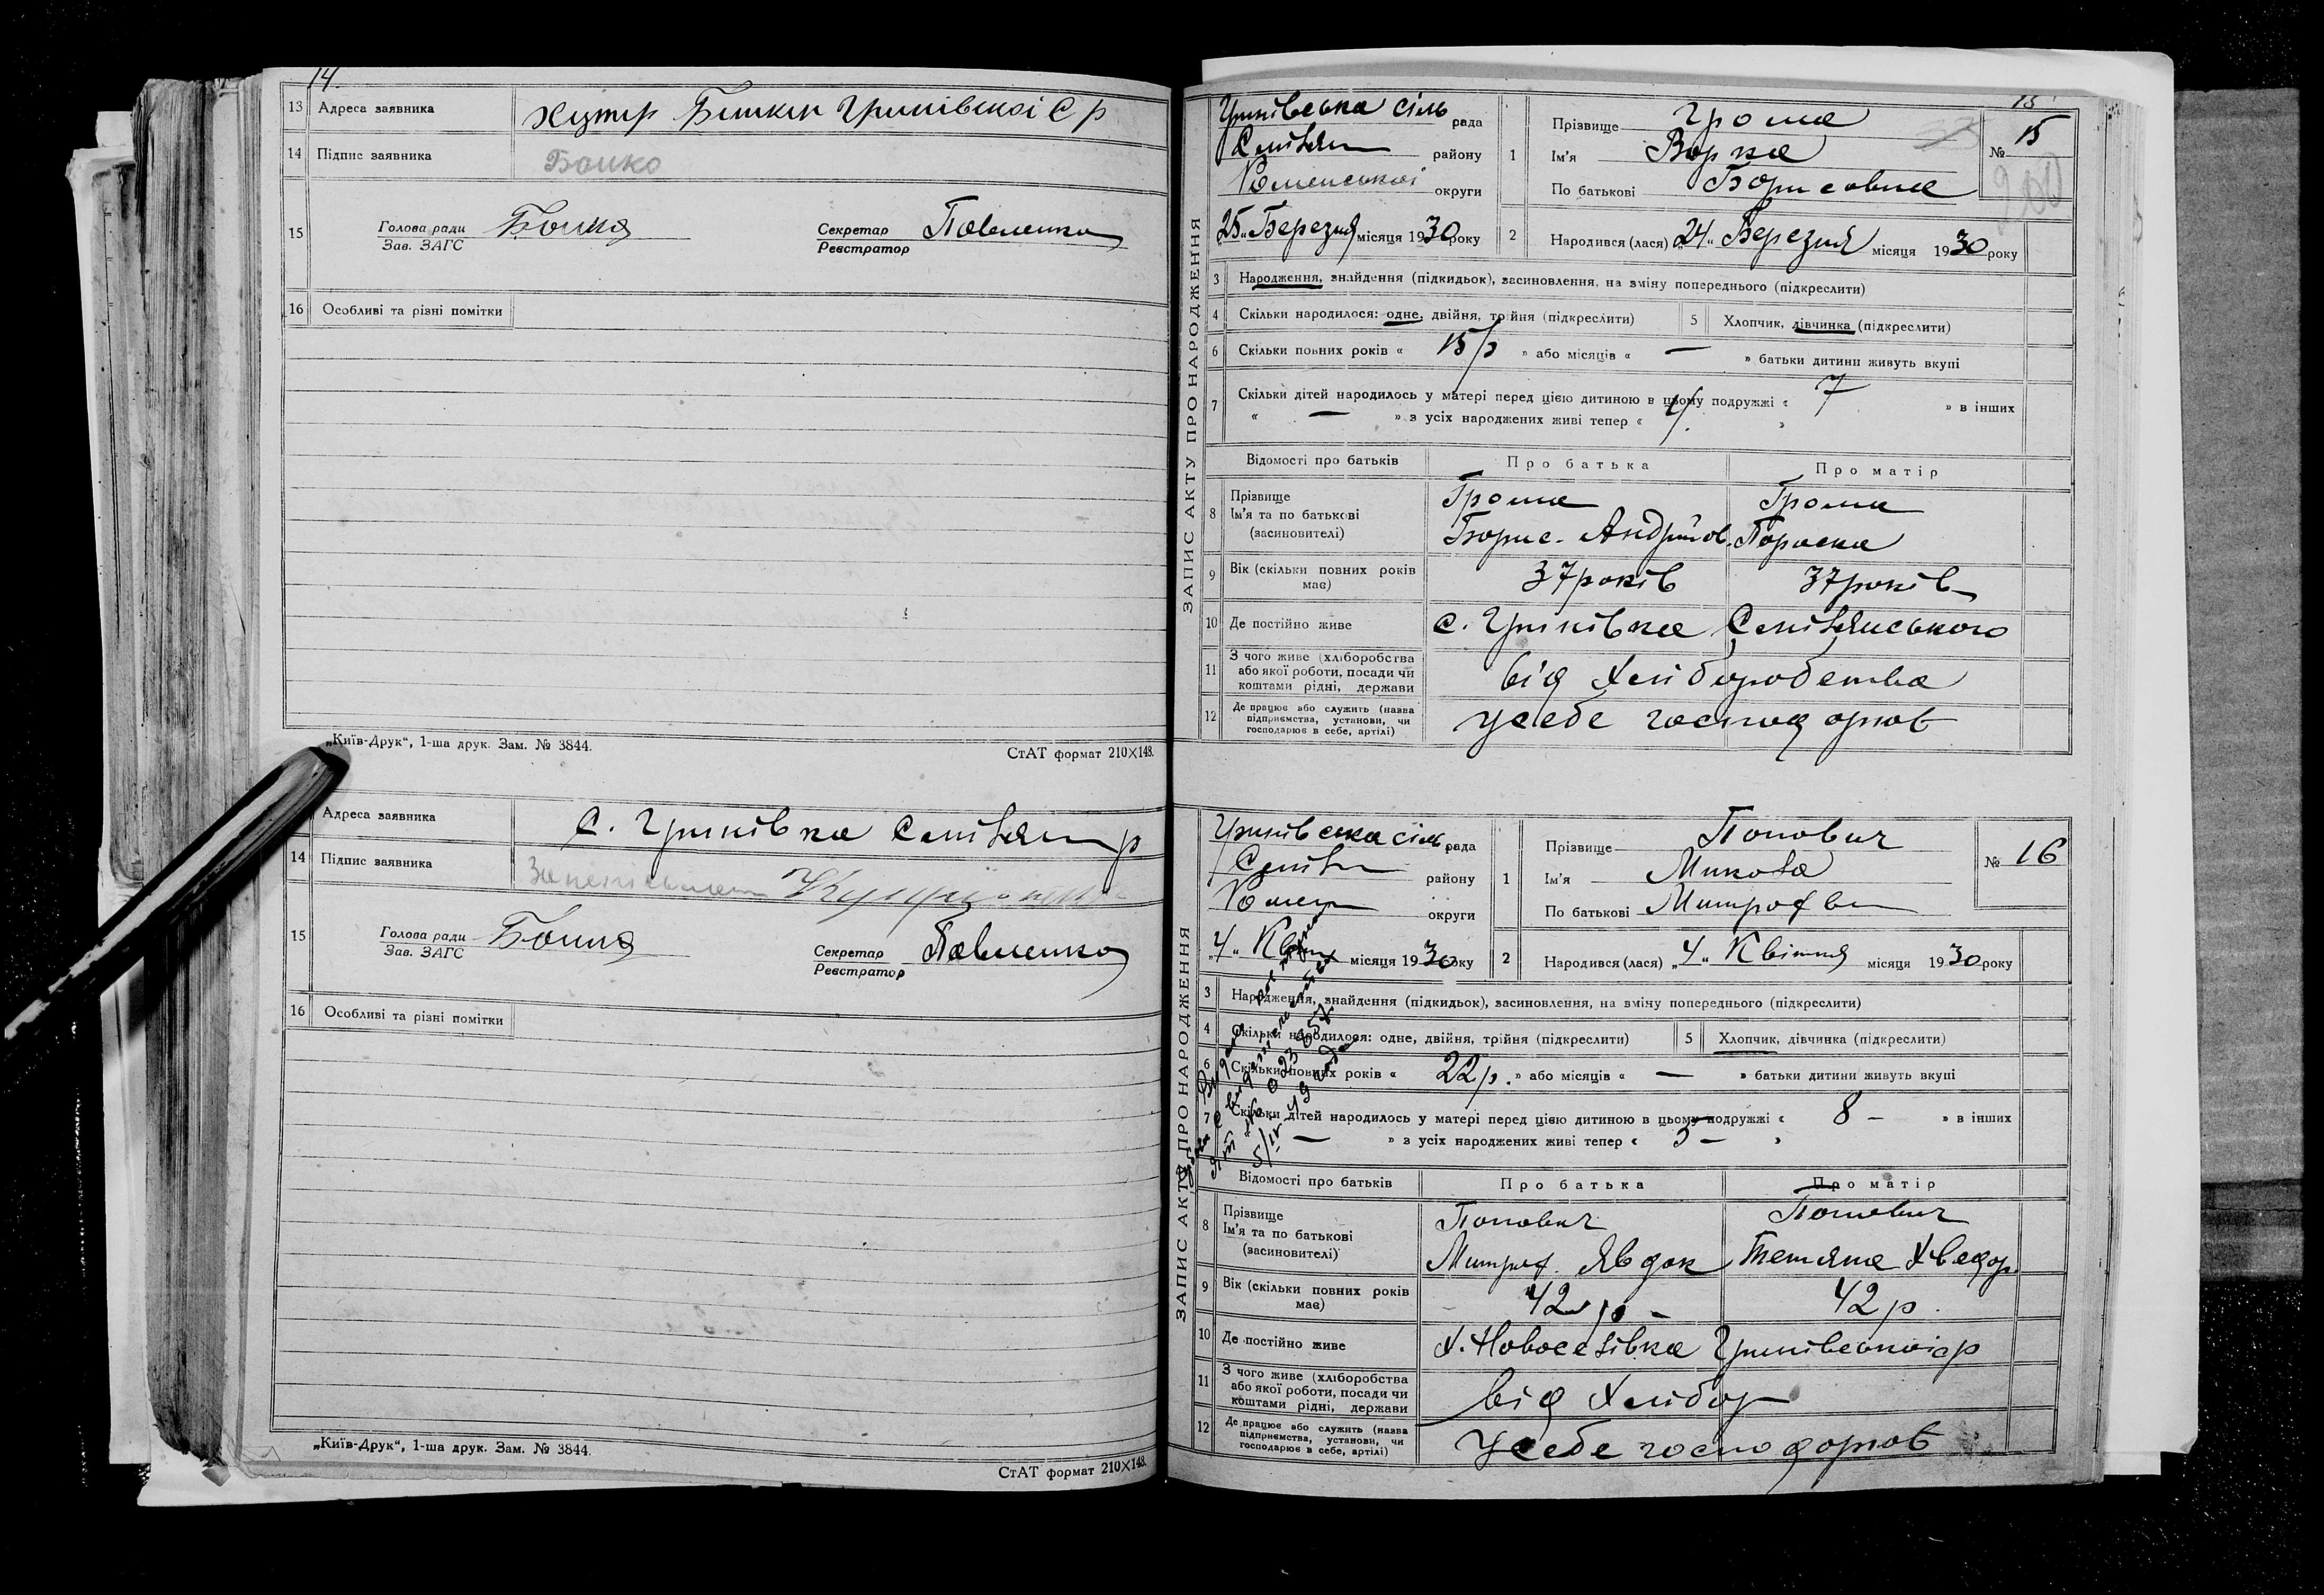 14.
13 Адреса заявника хутір Бишкин Гринівскоі С р
14 Підпис заявника Боико
15 Голова ради Боико Секретар Павленко
Зав. ЗАГС Реєстратор
16 Особливі та різні помітки
„Київ-Друк“, 1-ша друк. Зам. № 3844. СтАТ формат 210×148.
Адреса заявника с. Гринівка р
14 Підпис заявника
15 Голова ради Боико Секретар Павленко
Зав. ЗАГС Реєстратор
16 Особливі та різні помітки
„Київ-Друк“, 1-ша друк. Зам. № 3844. СтАТ формат 210×148.
15
ЗАПИС АКТУ ПРО НАРОДЖЕННЯ
Гринівська сіль рада
району
Роменськоі округи
25 „ Березня місяця 1930 року
1 Прізвище Гроша
Ім'я Варка
По батькові Борисовна
№ 15
200
2 Народився (лася) „24“ Березня місяця 1930 року
3 Народження, знайдення (підкидьок), засиновлення, на зміну попереднього (підкреслити)
4 Скільки народилося: одне, двійня, трійня (підкреслити) 5 Хлопчик, дівчинка (підкреслити)
6 Скільки повних років « 15 р » або місяців « — » батьки дитини живуть вкупі
7 Скільки дітей народилось у матері перед цією дитиною в цьому подружжі « 7 » в інших
« — » з усіх народжених живі тепер « 4. »
Відомості про батьків Про батька Про матір
8 Прізвище Гроша Гроша
Ім'я та по батькові
(засиновителі) Борис Андрійов. Параска
9 Вік (скільки повних років має) 37 років 37 років
10 Де постійно живе с. Гринівка
11 З чого живе (хліборобства
або якої роботи, посади чи
коштами рідні, держави від Хліборобства
12 Де працює або служить (назва
підприємства, установи, чи
господарює в себе, артілі) усебе господарюв
ЗАПИС АКТУ ПРО НАРОДЖЕННЯ
Гринівська сіль рада
району
Ромен округи
„4 „ Квітня місяця 1930 року
1 Прізвище Попович
Ім'я Микола
По батькові Митроф
№ 16
2 Народився (лася) „4 „ Квітня місяця 1930 року
3 Народження, знайдення (підкидьок), засиновлення, на зміну попереднього (підкреслити)
4 Скільки народилося: одне, двійня, трійня (підкреслити) 5 Хлопчик, дівчинка (підкреслити)
6 Скільки повних років « 22 р. » або місяців « — » батьки дитини живуть вкупі
7 Скільки дітей народилось у матері перед цією дитиною в цьому подружжі « 8 — » в інших
« — » з усіх народжених живі тепер « 5 — »
Відомості про батьків Про батька Про матір
8 Прізвище Попович Попович
Ім'я та по батькові
(засиновителі) Митроф. Явдок Тетяна Хведор.
9 Вік (скільки повних років має) 42 р — 42 р.
10 Де постійно живе х. Новоселівка Гринівськоі ср
11 З чого живе (хліборобства
або якої роботи, посади чи
коштами рідні, держави від Хлібор
12 Де працює або служить (назва
підприємства, установи, чи
господарює в себе, артілі) Усебе господарюв